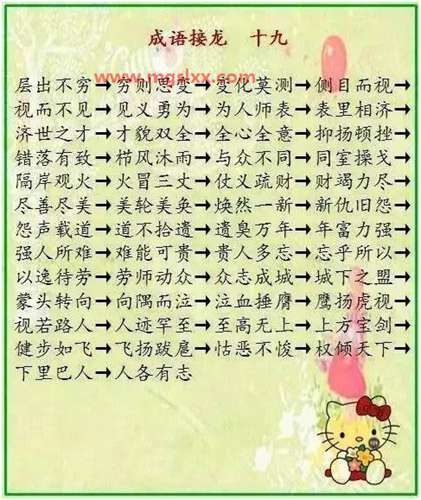 成语接龙 十九
www.mgslxx.com
层出不穷→穷则思变→变化莫测→侧目而视→
视而不见→见义勇为→为人师表→表里相济→
济世之才→才貌双全→全心全意→抑扬顿挫→
错落有致→栉风沐雨→与众不同→同室操戈→
隔岸观火→火冒三丈→仗义疏财→财竭力尽→
尽善尽美→美轮美奂→焕然一新→新仇旧怨→
怨声载道→道不拾遗→遗臭万年→年富力强→
强人所难→难能可贵→贵人多忘→忘乎所以→
以逸待劳→劳师动众→众志成城→城下之盟→
蒙头转向→向隅而泣→泣血捶膺→鹰扬虎视→
视若路人→人迹罕至→至高无上→上方宝剑→
健步如飞→飞扬跋扈→怙恶不悛→权倾天下→
下里巴人→人各有志